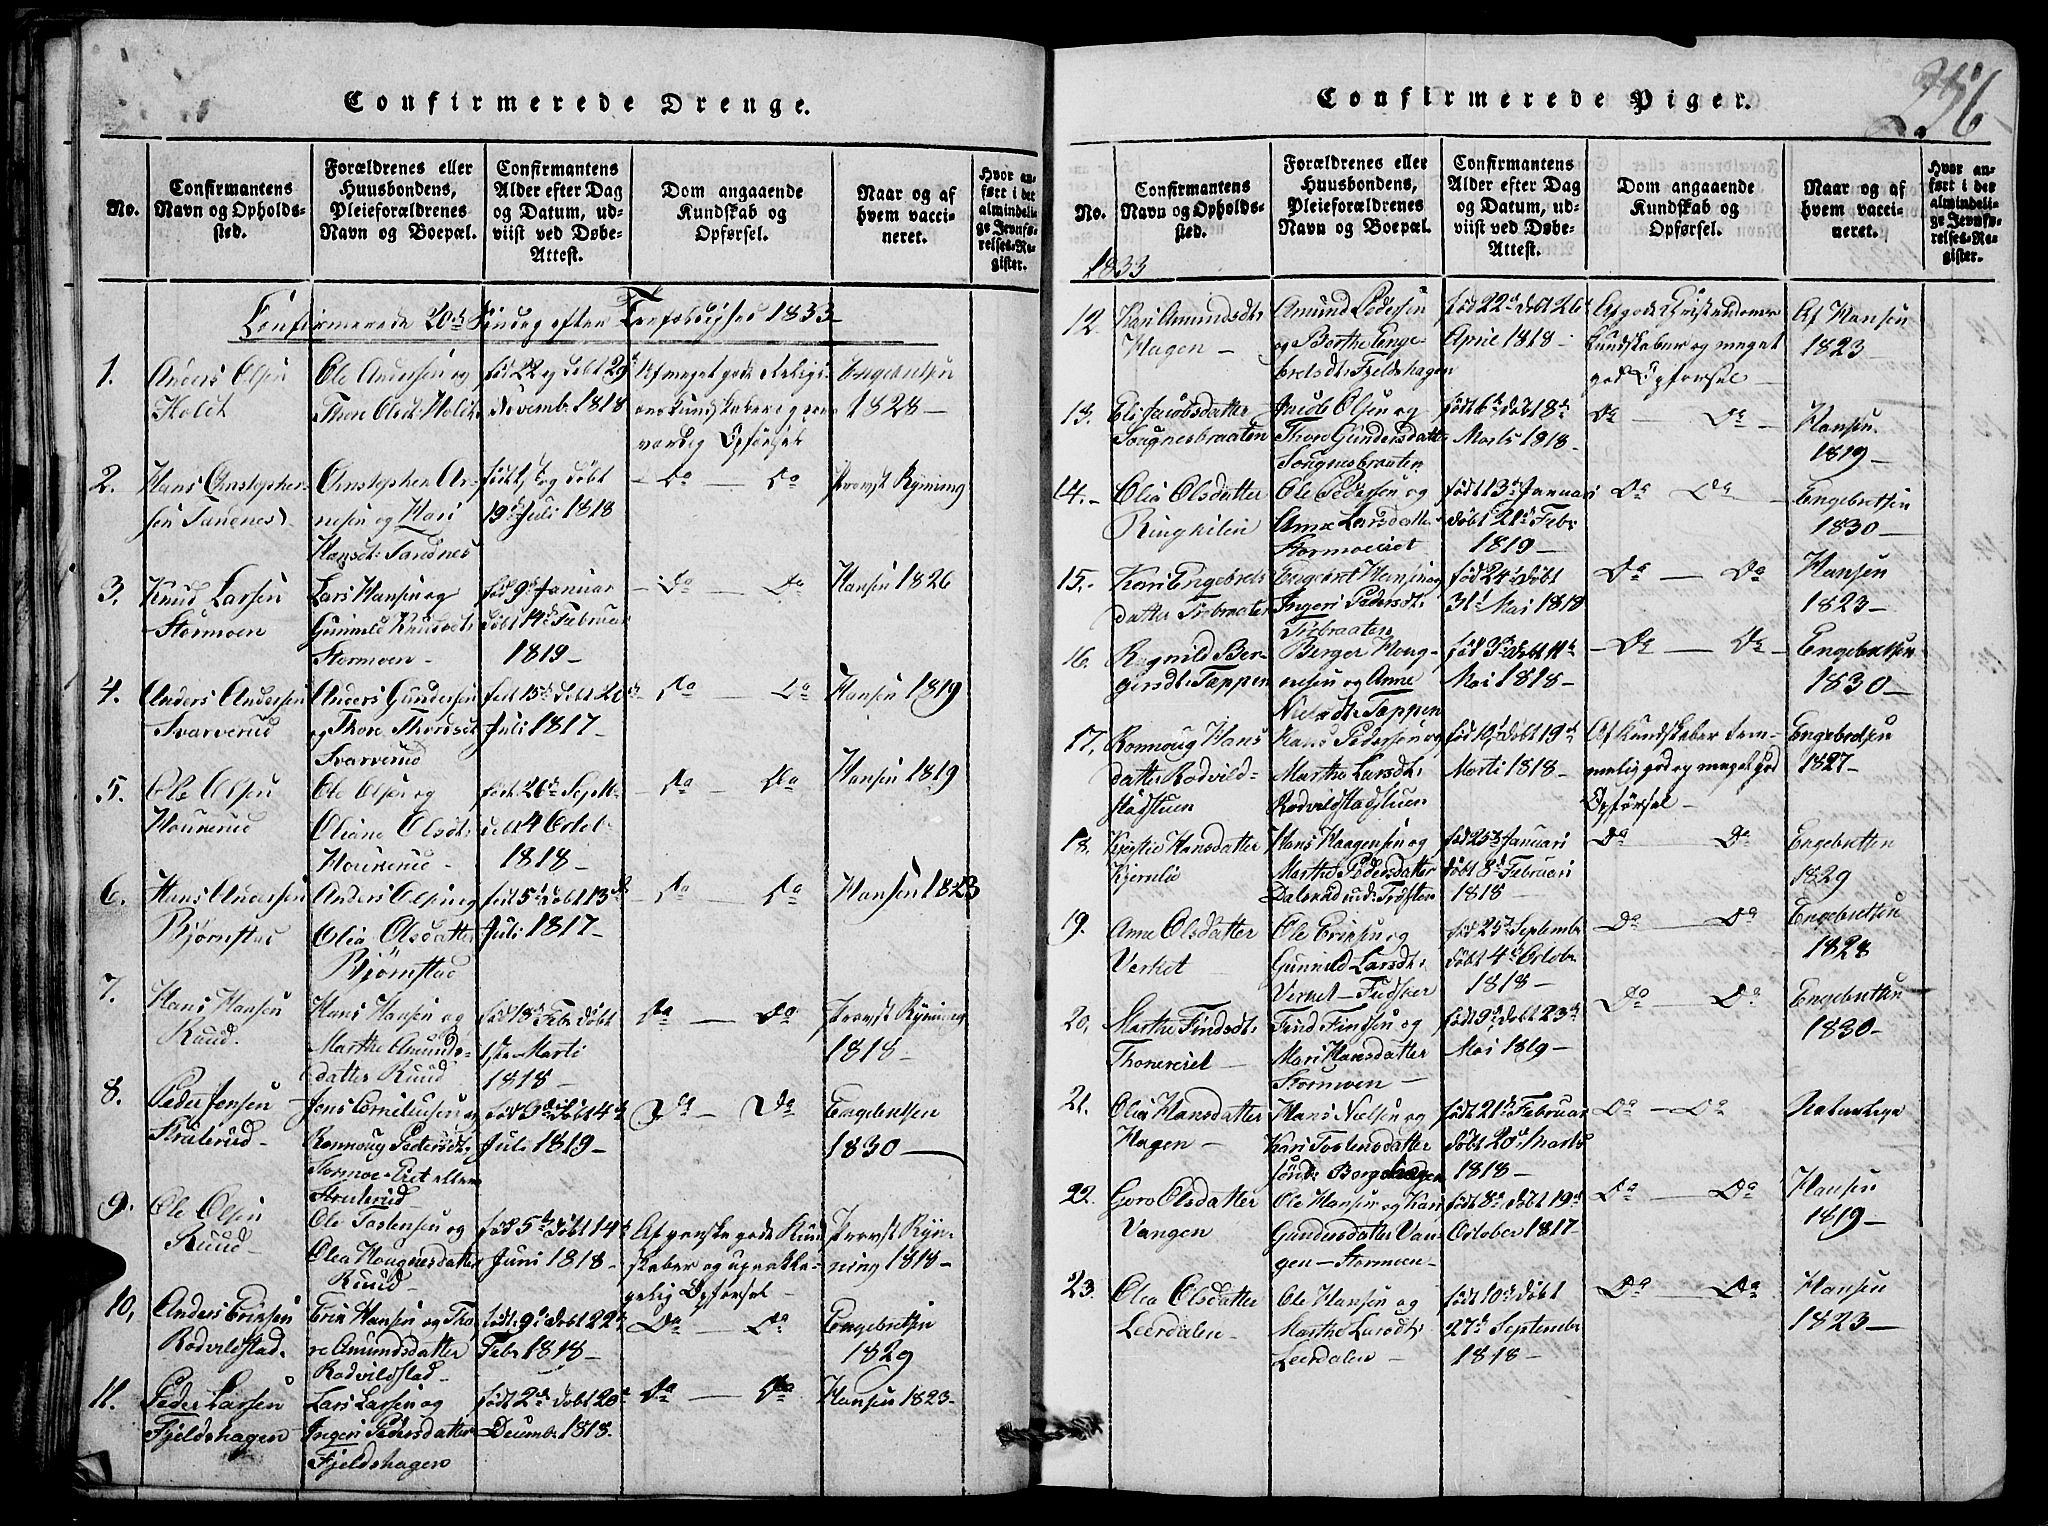 Confirmerede Drenge.
No.
Confirmantens
Navn og Opholds-
sted.
Forældrenes eller
Huusbondens,
Pleieforældrenes
Navn og Boepæl.
Confirmantens
Alder efter Dag
og Datum, ud-
viist ved Døbe-
Attest.
Dom angaaende
Kundskab og
Opførsel.
Naar og af
hvem vacci-
neret.
Hvor an-
ført i det
almindeli-
ge Jevnfø-
relses-Re-
gister.
Confirmerede 20de Søndag efter Trefoldighed 1833
1.
Anders Olsen
Holet
Ole Andersen og
Thore Olsdt: Holet
fød 22 og døbt 29d
Novembr 1818
Af meget gode Religi-
onskundskaber og
værdig Opførsel
Engebretsen
1828 —
2.
Hans Christopher-
sen Sandnes
Christopher Ar-
nesen og Kari
Hansdt: Sandnes
født og døbt
19d Juli 1818
— Do — Do
Provst Rÿnning
3.
Knud Larsen
Stormoen
Lars Hansen og
Gunnild Knudsdt:
Stormoen —
fød 9d Januar
døbt 14d Februar
1819 —
— Do — Do
Hansen 1826
4.
Anders Andersen
Svarverud
Anders Gundersen
og Thore Thoresdt
Svarverud
født 15d døbt 20d
Juli 1817 —
Do — Do
Hansen 1819
5.
Ole Olsen
Houkerud
Ole Olsen og
Oliane Olsdt:
Houkerud —
født 26d Septbr
døbt 4 Octob
1818 —
— Do — Do
Hansen 1819
6.
Hans Andersen
Bjørnstad
Anders Olsen og
Olia Olsdatter
Bjørnstad
født 5d døbt 13d
Juli 1817 —
— Do — Do
Hansen 1823
7.
Hans Hansen
Ruud.
Hans Hansen og
Marthe Amunds-
datter Ruud
fød 18d Febr døbt
1ste Marti
1818 —
Do — Do
Provst Rÿnning
1818 —
8.
Peder Jensen
Struterud —
Jens Cornelius­en og
Ronnoug Pedersdt:
Stormoe-Eiet eller
Struterud
fød 9d døbt 4d
Juli 1819 —
Do — Do
Engebretsen
1830
9.
Ole Olsen
Ruud —
Ole Tostensen og
Olea Hougnesdatter
Ruud —
fød 5d døbt 14d
Juni 1818 —
Af ganske gode Kund
skaber og upaakla-
gelig Opførsel —
Provst Rÿn-
ning 1818 —
10,
Anders Ericsen
Rodvildstad.
Erik Hansen og Tho-
re Amundsdatter
Rodvildstad —
født 9d døbt 22d
Febr 1818 —
Do — Do
Engebretsen
1829
11.
Peder Larsen
Fjeldshagen
Lars Larsen og
Ingeri Pedersdatter
Fjeldshagen
født 2d døbt 20d
Decembr 1818.
Do — Do
Hansen 1823 —
Confirmerede Piger.
256
No.
Confirmantens
Navn og Opholds-
sted.
Forældrenes eller
Huusbondens,
Pleieforældrenes
Navn og Boepæl.
Confirmantens
Alder efter Dag
og Datum, ud-
viist ved Døbe-
Attest.
Dom angaaende
Kundskab og
Opførsel.
Naar og af
hvem vacci-
neret.
Hvor an-
ført i det
almindeli-
ge Jevnfø-
relses-Re-
gister.
1833
12.
Kari Amundsdt:
Hagen —
Amund Pedersen
og Berthe Enge-
bretsdt: Fjeldshagen
fød 22d døbt 26d
April 1818 —
Af gode Christendoms
kundskaber og meget
god Opførsel —
Af Hansen
1823 —
13.
Eli Jacobsdatter
Sougnesbraaten
Jacob Olsen og
Thore Gundersdatter
Sougnesbraaten
født 6d døbt 18d
Marts 1818 —
Do — Do
Hansen
1819 —
14. —
Olia Olsdatter
Ringhilen
Ole Pedersen og
Anne Larsdatter
Stormoeiet
født 13d Januari
døbt 21d Febr
1819 —
Do — Do
Engebretsen
1830 —
15. —
Kari Engebrets
datter Siebraaten
Engebret Hansen og
Ingeri Pedersdt:
Siebraaten
fød 24d døbt
31d Mai 1818
Do — Do
Hansen
1823 —
16.
Ragnild Ber-
gersdt: Tappen
Berger Houg-
nesen og Anne
Nielsdt: Tappen
fød 3d døbt 11d
Mai 1818 —
— Do — Do —
Engebretsen
1830 —
17.
Ronnoug Hans
datter Rodvild-
stadstuen
Hans Pedersen og
Marthe Larsdt:
Rodvildstadstuen
fød 10d døbt 19d
Marti 1818 —
Af Kundskaber tem-
melig god og meget god
Opførsel —
Engebretsen
1827 —
18.
Kjersti Hansdatter
Bjernlie
Hans Haagensen og
Marthe Pedersdatter
fød 25d Januari
døbt 8d Februari
1818 —
Do — Do
Engebretsen
1829
19.
Anne Olsdatter
Verket
Ole Ericsen og
Gunnild Larsdt:
Verket —
fød 25d Septembr
døbt 4d Octobr
1818 —
— Do — Do
Engebretsen
1828
20,
Marthe Findsdt:
Thoneeiet —
Find Findsen og
Mari Hansdatter
Stormoen —
født 9d døbt 23d
Mai 1819 —
Do — Do
Engebretsen
1830 —
21.
Olia Hansdatter
Hagen —
Hans Nielsen og
Kari Tostensdatter
Søndr Berg Hagen
født 21d Februar
døbt 20d Marts
1818 —
Do — Do
Naturlige
22.
Goro Olsdatter
Vangen
Ole Hansen og Kari
Gundersdatter Van-
gen — Stormoen —
født 8d døbt 19d
October 1817 —
Do — Do
Hansen
1819 —
23.
Olea Olsdatter
Leerdalen —
Ole Hansen og
Marthe Larsdt:
Leerdalen —
født 10d døbt
27d Septembr
1818 —
Do — Do
Hansen
1823 —